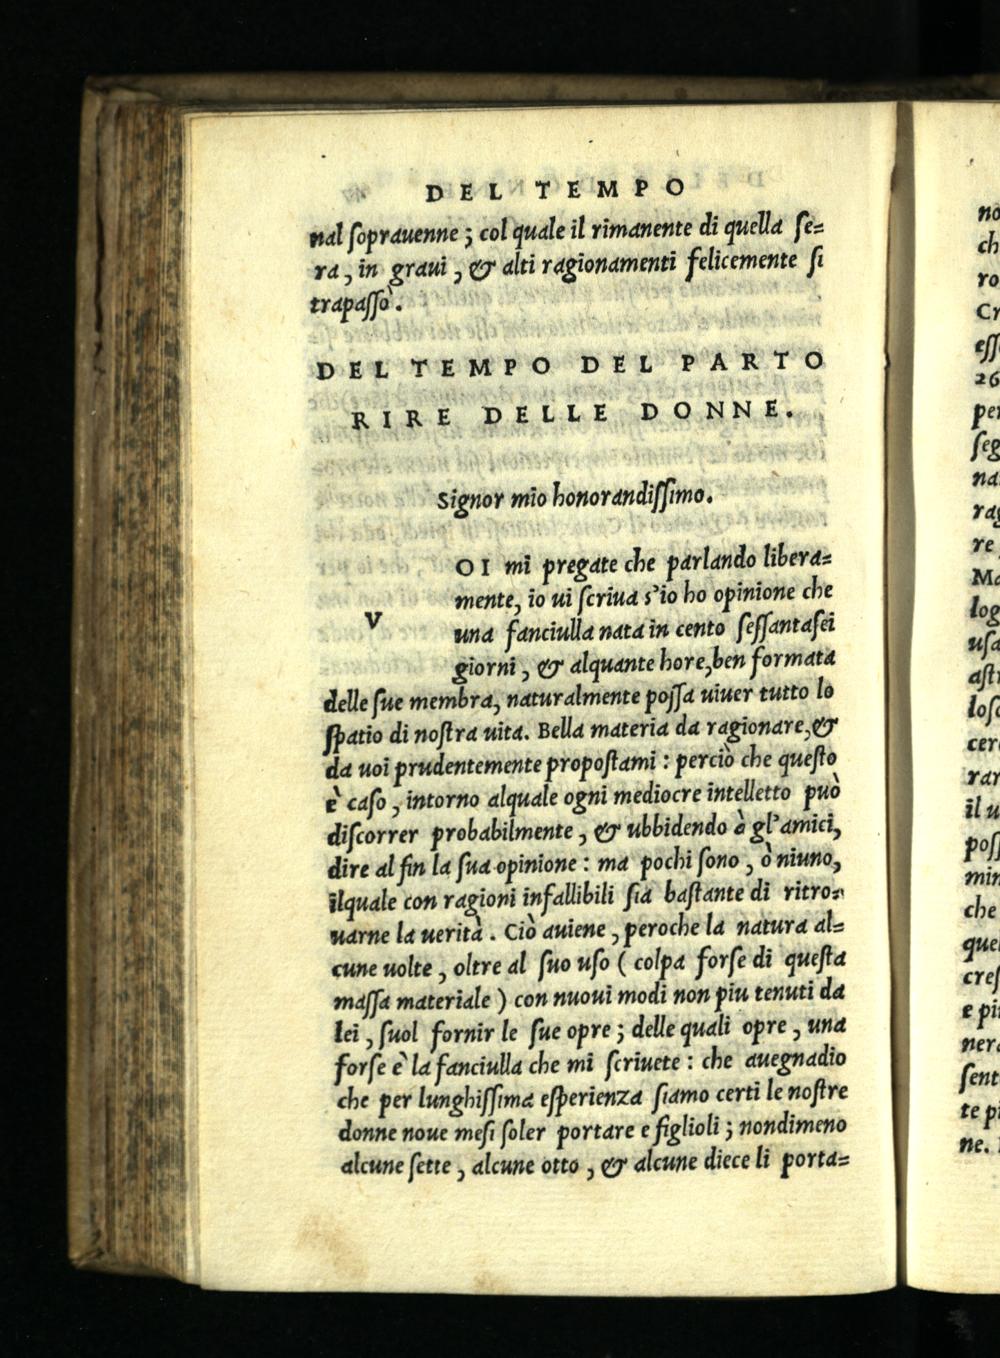 DEL TEMPO
nal ſoprauenne ; col quale il rimanente di quella ſe=
ra , in graui , & alti ragionamenti felicemente ſi
trapaſſò .
DEL TEMPO DEL PARTO
RIRE DELLE DONNE.
Signor mio honorandiſſimo.
VOI mi pregate che parlando libera=
mente, io ui ſcriua s'io ho opinione che
una fanciulla nata in cento ſeſſantaſei
giorni , & alquante hore, ben formata
delle ſue membra, naturalmente poſſa uiuer tutto lo
ſpatio di noſtra uita. Bella materia da ragionare, &
da uoi prudentemente propoſtami : perciò che queſto
è caſo , intorno alquale ogni mediocre intelletto può
diſcorrer probabilmente , & ubbidendo à gl'amici,
dire al fin la ſua opinione : ma pochi ſono , ò niuno,
ilquale con ragioni infallibili ſia baſtante di ritro=
uarne la uerità . Ciò auiene , peroche la natura al=
cune uolte , oltre al ſuo uſo ( colpa forſe di queſta
maſſa materiale ) con nuoui modi non piu tenuti da
lei , ſuol fornir le ſue opre ; delle quali opre , una
forſe è la fanciulla che mi ſcriuete : che auegnadio
che per lunghiſſima eſperienza ſiamo certi le noſtre
donne noue meſi ſoler portare e figlioli ; nondimeno
alcune ſette , alcune otto , & alcune diece li porta=
no
ch
ro
Cr
eſſ
26
per
ſeg
na
rag
re
Ma
log
uſa
aſtr
loſo
cer
rar
il u
poſſ
min
che
que
creſ
e pi
ner
ſent
te pi
ne.